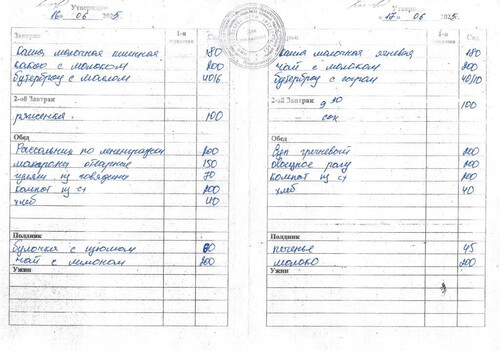 Утверждаю
16 06 2025
Завтрак
1-я
Сад
каша молочная пшенная 180
какао с молоком 200
бутерброд с маслом 40/6
2-ой Завтрак
ряженка 100
Обед
Рассольник по ленинградски 200
макароны отварные 150
гуляш из говядины 70
компот из с/ф 200
хлеб 40
Полдник
булочка с изюмом 60
чай с лимоном 200
Ужин
Утверждаю
17 06 2025
Завтрак
1-я
Сад
каша молочная ячневая 180
чай с молоком 200
бутерброд с сыром 40/10
2-ой Завтрак
сок 100
Обед
суп гречневый 200
овощное рагу 200
компот из с/ф 200
хлеб 40
Полдник
печенье 45
молоко 200
Ужин